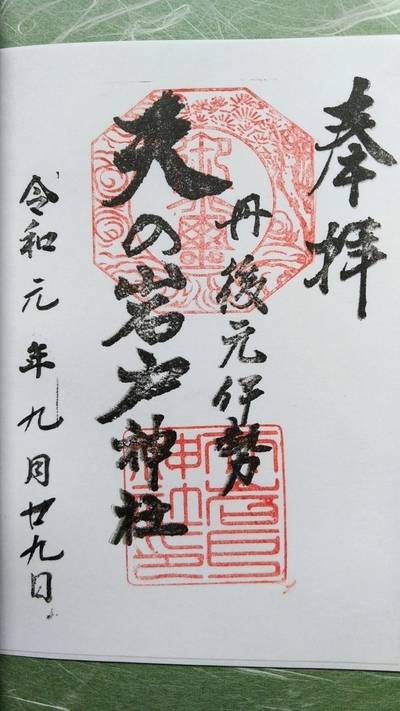 奉拝
丹後元伊勢
天の岩戸神社
令和元年九月廿九日